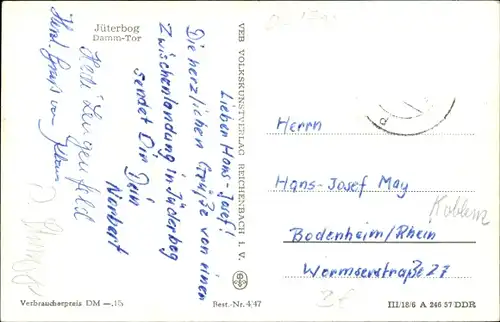 Jüterbog
Damm-Tor
Lieber Hans-Josef!
Die herzlichen Grüße von einer
Zwischenlandung in Jüderbog
sendet Dir Dein
Norbert
VEB VOLKSKUNSTVERLAG REICHENBACH I. V.
Herrn
Hans-Josef May
Koblenz
Bodenheim/Rhein
Wormserstraße 27
Verbraucherpreis DM -,15
Best.-Nr. 4/47
III/18/6 A 246 57 DDR